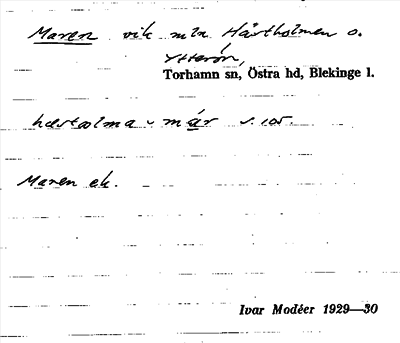 Maren vik mln Hästholmen o.
Ytterön,
Torhamn sn, Östra hd, Blekinge l.
hæstolma - mår s. 105.
Maren ek.
Ivar Modéer 1929—30